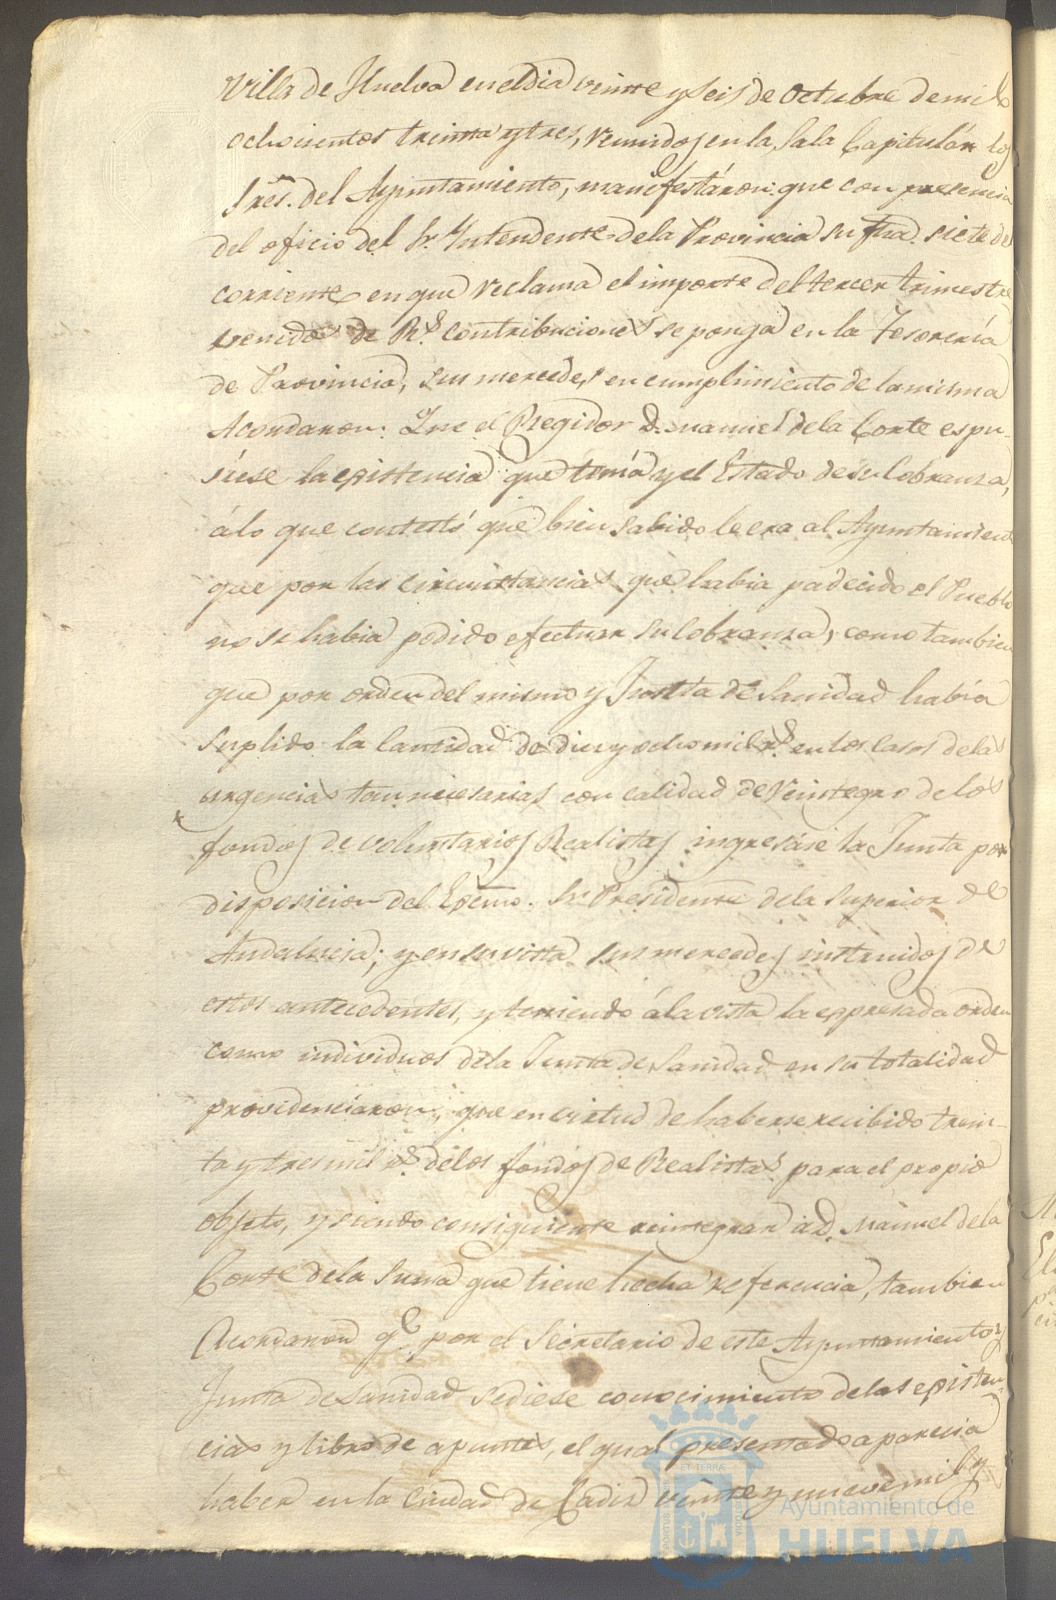 Villa de Huelva en el dia veinte y seis de Octubre de mil
ochocientos treinta y tres, reunidos en la Sala Capitulár los
Sres. del Ayuntamiento, manifestáron: que con presencia
del oficio del Sr. Intendente de la Provincia su fha. siete de
corriente en que reclama el importe del tercer trimestre
vencido de Rs. contribuciones se ponga en la Tesorería
de Provincia, sus mercedes en cumplimiento de la misma
Acordaron: Que el Regidor D. Manuel de la Corte espu-
siese la existencia que tenía y el Estado de su Cobranza,
á lo que contestó que bien sabido le era al Ayuntamiento
que por las circunstancias que habia padecido el Pueblo
no se habia podido efectuar su cobranza, como tambien
que por orden del mismo y Junta de Sanidad habia
suplido la Cantidad de diez y ocho mil rs. en los casos de las
urgencias tan necesarias con calidad de Reintegro de los
fondos de voluntarios Realistas ingresáse la Junta por
disposicion del Exmo. Sr. Presidente de la Superior de
Andalucia; y en su vista sus mercedes instruidos de
estos antecedentes, y teniendo á la vista la expresada orden
como individuos de la Junta de Sanidad en su totalidad
providenciaron, que en virtud de haberse recibido trein-
ta y tres mil rs. de los fondos de Realistas para el propio
objeto, y siendo consiguiente reintegrar á D. Manuel de la
Corte de la Suma que tiene hecha referencia, tambien
Acordaron qe. por el Secretario de este Ayuntamiento y
Junta de Sanidad se diese conocimiento de las existen-
cias y libro de apuntes, el qual presentado aparecia
haber en la Ciudad de Cadiz veinte y nueve mil y
Ayuntamiento de
HUELVA